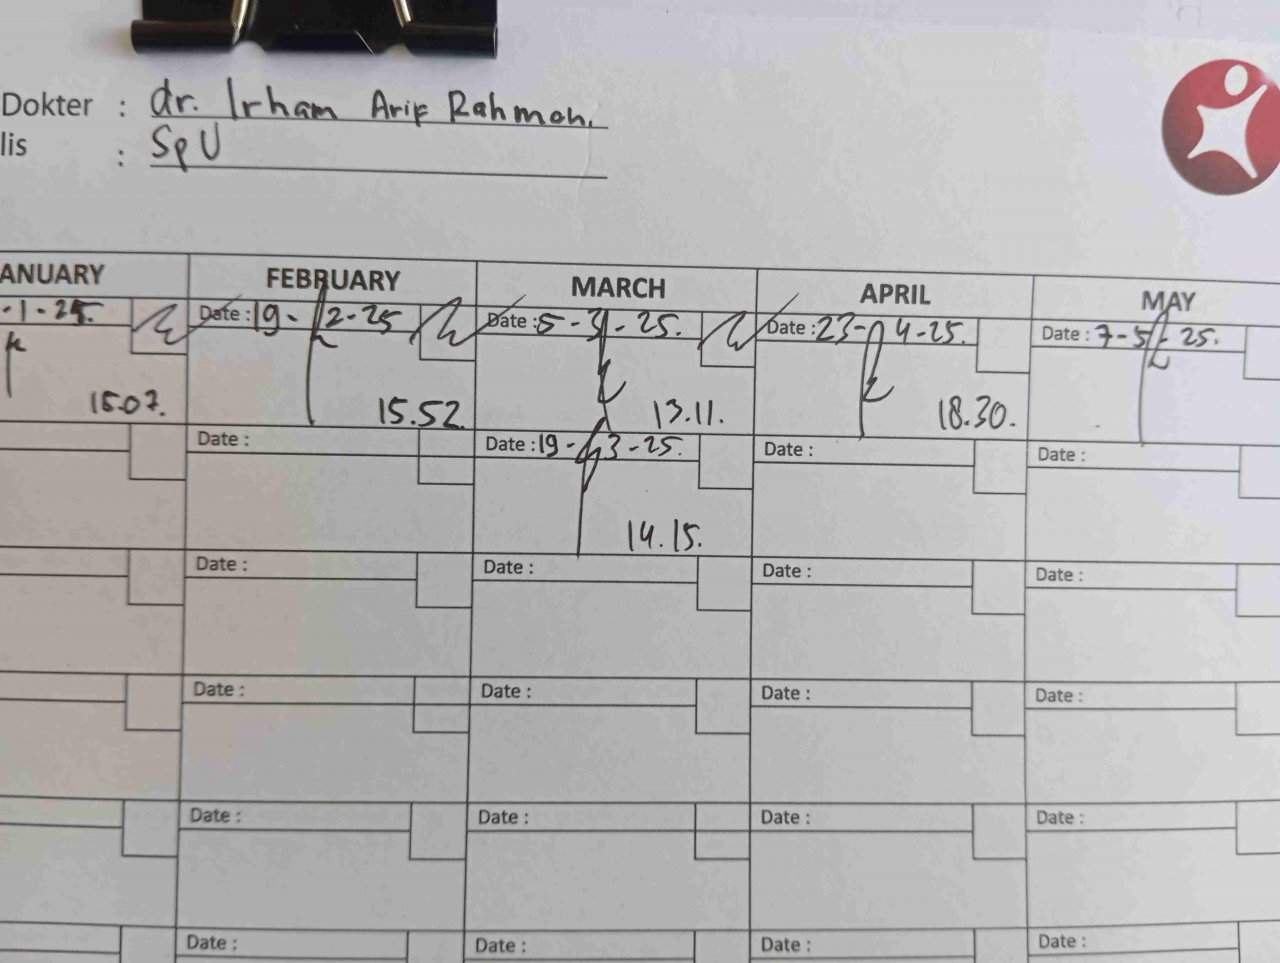 Dokter : dr. Irham Arif Rahman.
lis : SpU
ANUARY FEBRUARY MARCH APRIL MAY
-1-25. Date : 19-2-25 Date : 5-3-25. Date : 23-4-25. Date : 7-5-25.
15.07. 15.52. 13.11. 18.30.
Date : Date : 19-3-25. Date : Date :
14.15.
Date : Date : Date : Date :
Date : Date : Date : Date :
Date : Date : Date : Date :
Date : Date : Date : Date :